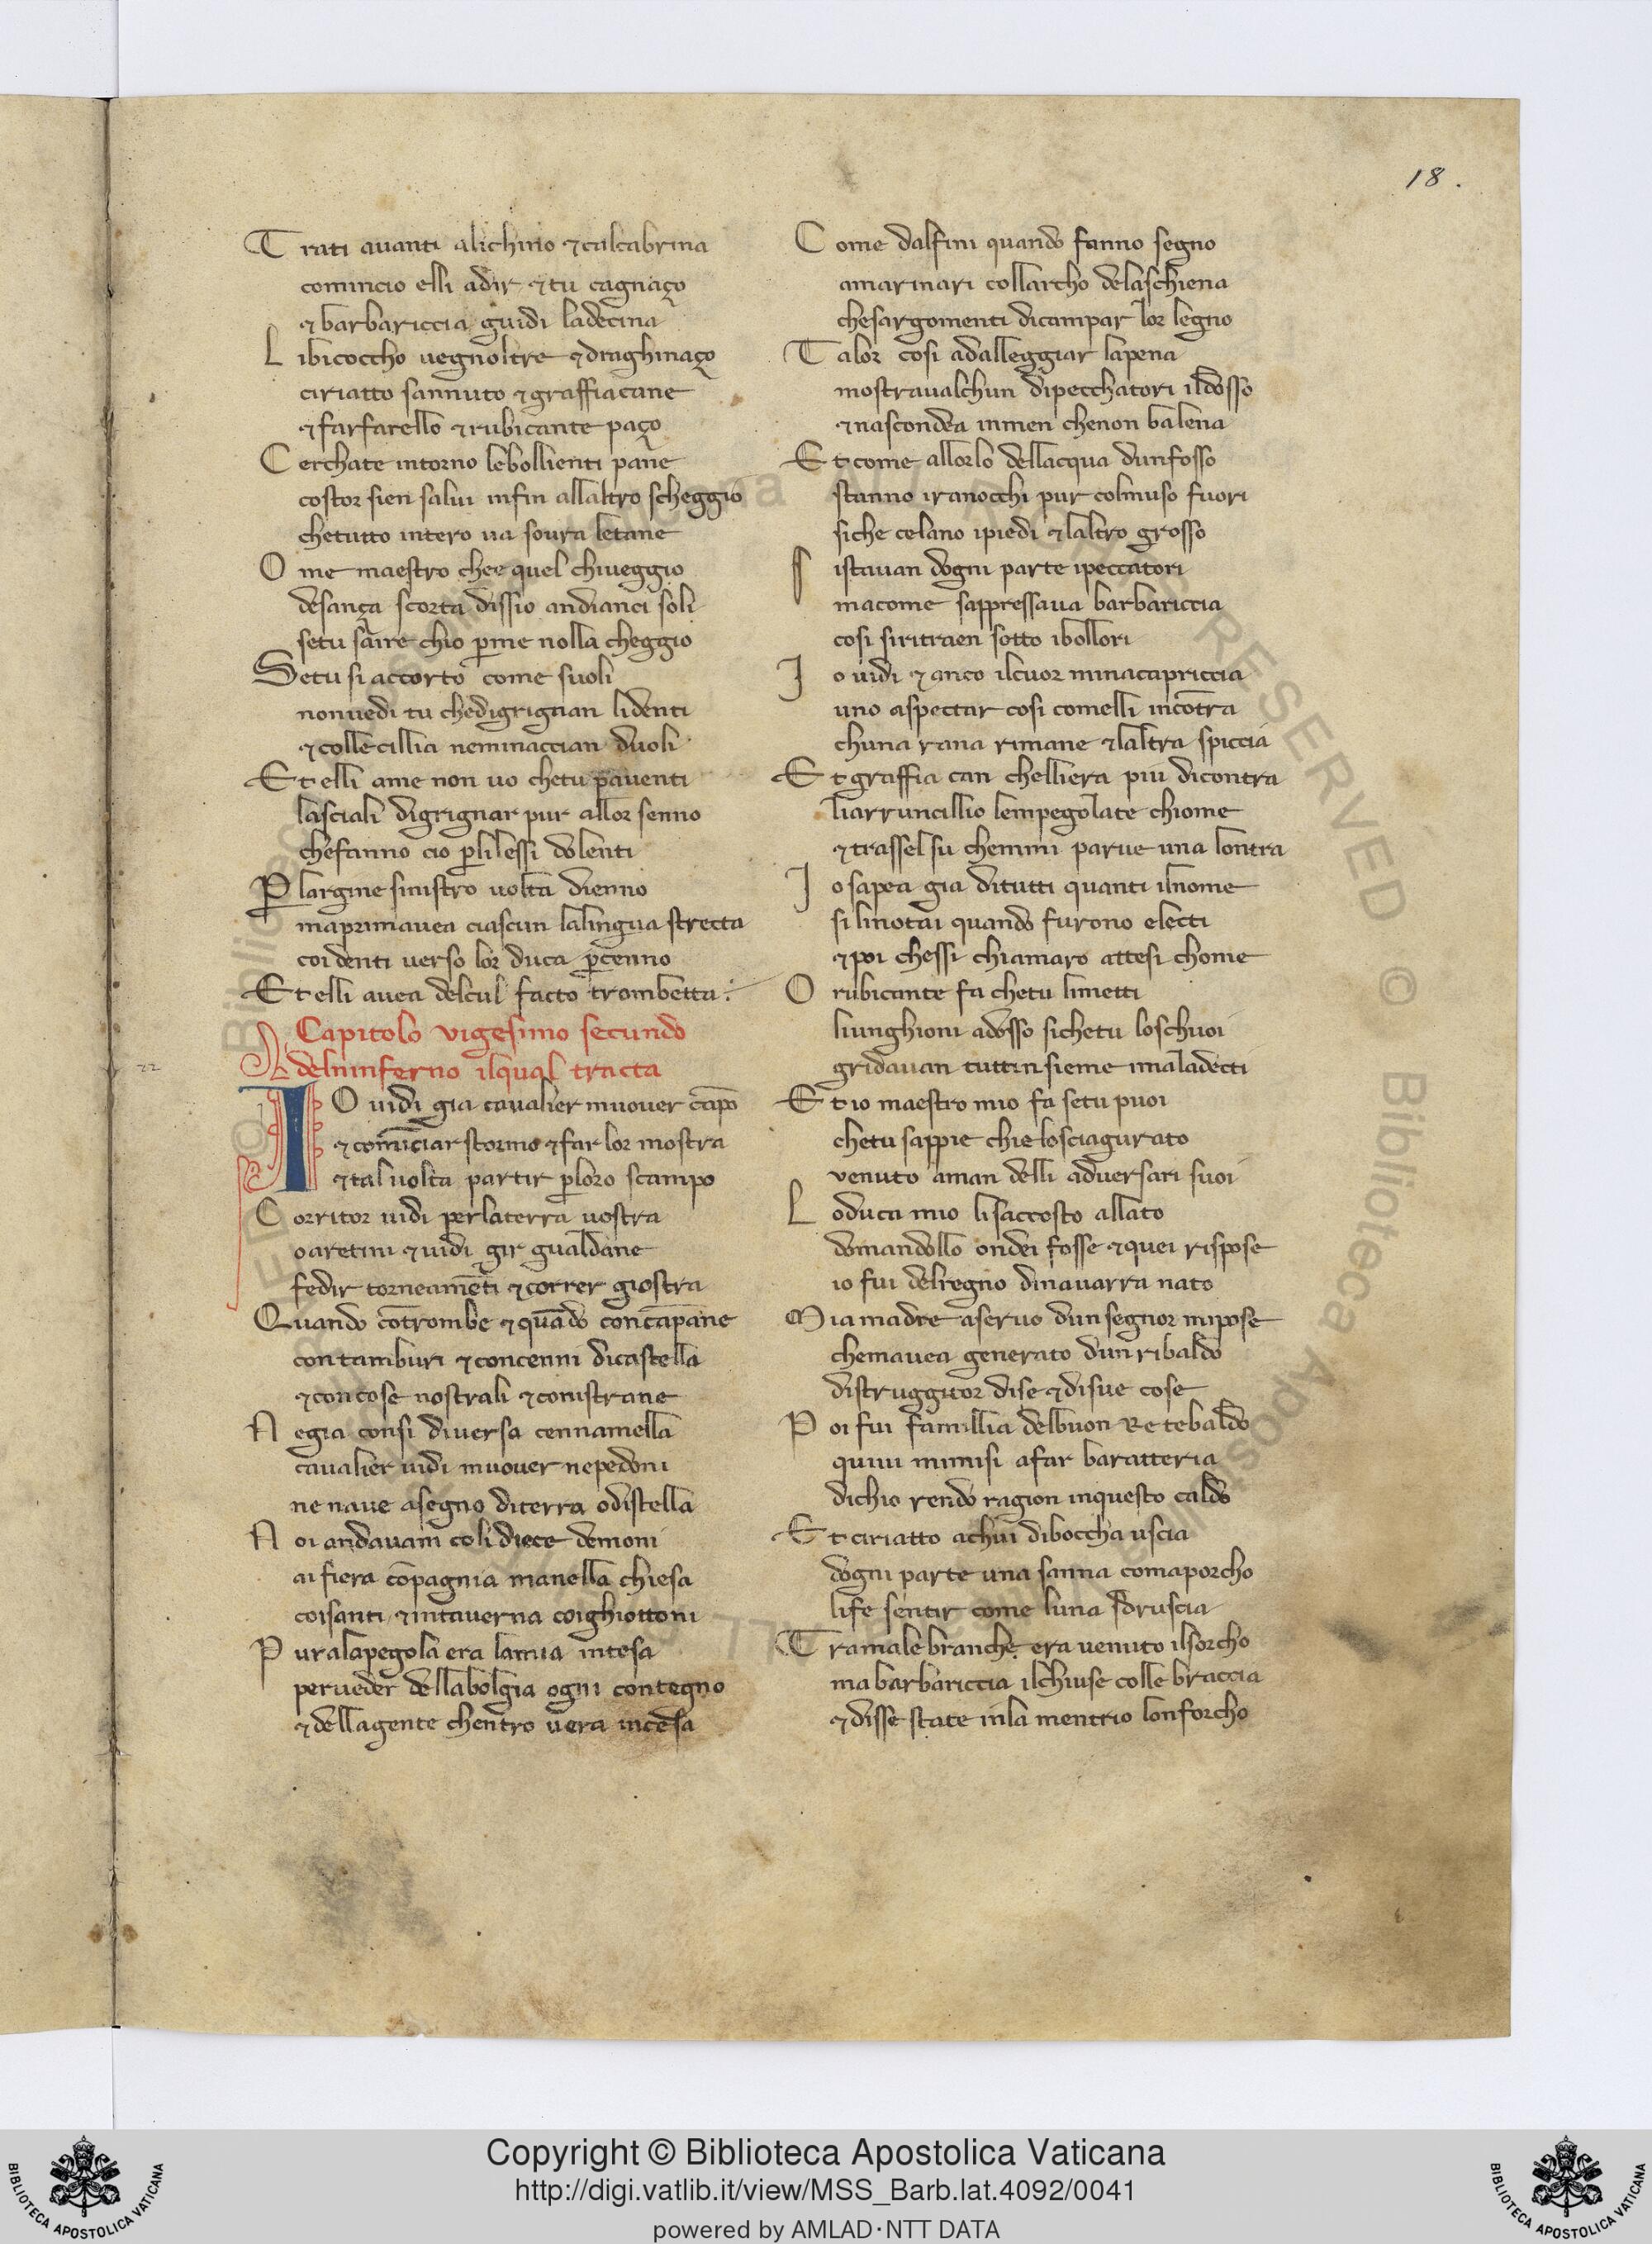 18.
Trati auanti alichino ⁊ calcabrina
comincio elli adir ⁊ tu cagnaço
⁊ barbariccia guidi ladecina
Libicoccho uegnoltre ⁊ draghinaço
ciriatto sannuto ⁊ graffiacane
⁊ farfarello ⁊ rubicante paço
Cerchate intorno lebollienti pane
costor sien salui infin allaltro scheggio
chetutto intero ua soura letane
Ome maestro chee quel chiueggio
desança scorta dissio andianci soli
setu saire chio ꝑme nolla cheggio
Setu si accorto come suoli
nonuedi tu chedigrignan lidenti
⁊ colle cillia neminaccian duoli
Et elli ame non uo chetu pauenti
lasciali digrignar pur allor senno
chefanno cio ꝑlilessi dolenti
Ꝑ largine sinistro uolta dienno
maprimauea ciascun lalingua strecta
coidenti uerso lor duca ꝑcenno
Et elli auea delcul facto trombetta
Capitolo vigesimo secundo
delninferno ilqual tracta
22
IO uidi gia caualier muouer cãpo
⁊ comĩciar stormo ⁊ far lor mostra
⁊ tal uolta partir ꝑloro scampo
Corritor uidi perlaterra uostra
oaretini ⁊ uidi gir gualdane
fedir torneamẽti ⁊ correr giostra
Quando cõtrombe ⁊ quãdo concãpane
con tamburi ⁊ concenni dicastella
⁊ concose nostrali ⁊ conistrane
Negia consi diuersa cennamella
caualier uidi muouer nepedoni
ne naue asegno diterra odistella
Noi andauam coli diece demoni
ai fiera cõpagnia manella chiesa
coisanti ⁊ intauerna coighiottoni
Puralapegola era lamia intesa
perueder dellabolgia ogni contegno
⁊ dellagente chentro uera incesa
Come dalfini quando fanno segno
amarinari collarcho delaschiena
chesargomenti dicampar lor legno
Talor cosi adalleggiar lapena
mostraualchun dipecchatori ildosso
⁊ nascondea inmen chenon balena
Et come allorlo dellacqua dunfosso
stanno iranocchi pur colmuso fuori
siche celano ipiedi ⁊ laltro grosso
Sistauan dogni parte ipeccatori
macome sappressaua barbariccia
cosi siritraen sotto ibollori
Io uidi ⁊ anco ilcuor minacapriccia
uno aspectar cosi comelli incõtra
chuna rana rimane ⁊ laltra spiccia
Et graffia can chelliera piu dicontra
liarruncillio lempegolate chiome
⁊ trassel su chemmi parue una lontra
Io sapea gia ditutti quanti ilnome
si linotai quando furono electi
⁊ poi chessi chiamaro attesi chome
O rubicante fa chetu limetti
liunghioni adosso sichetu loschuoi
gridauan tuttinsieme imaladecti
Et io maestro mio fa setu puoi
chetu sappie chie losciagurato
venuto aman delli aduersari suoi
Loduca mio lisaccosto allato
domandollo ondei fosse ⁊ quei rispose
io fui delregno dinauarra nato
Mia madre aseruo dun segnor mipose
chemauea generato dun ribaldo
distruggitor dise ⁊ disue cose
Poi fui famillia delbuon Re tebaldo
quiui mimisi afar baratteria
dichio rendo ragion inquesto caldo
Et ciriatto achui diboccha uscia
dogni parte una sanna comaporcho
life sentir come luna sdruscia
Tramale branche era uenuto ilsorcho
ma barbariccia ilchiuse colle braccia
⁊ disse state inla mentrio lonforcho
Copyright © Biblioteca Apostolica Vaticana
http://digi.vatlib.it/view/MSS_Barb.lat.4092/0041
powered by AMLAD·NTT DATA
BIBLIOTECA APOSTOLICA VATICANA
BIBLIOTECA APOSTOLICA VATICANA